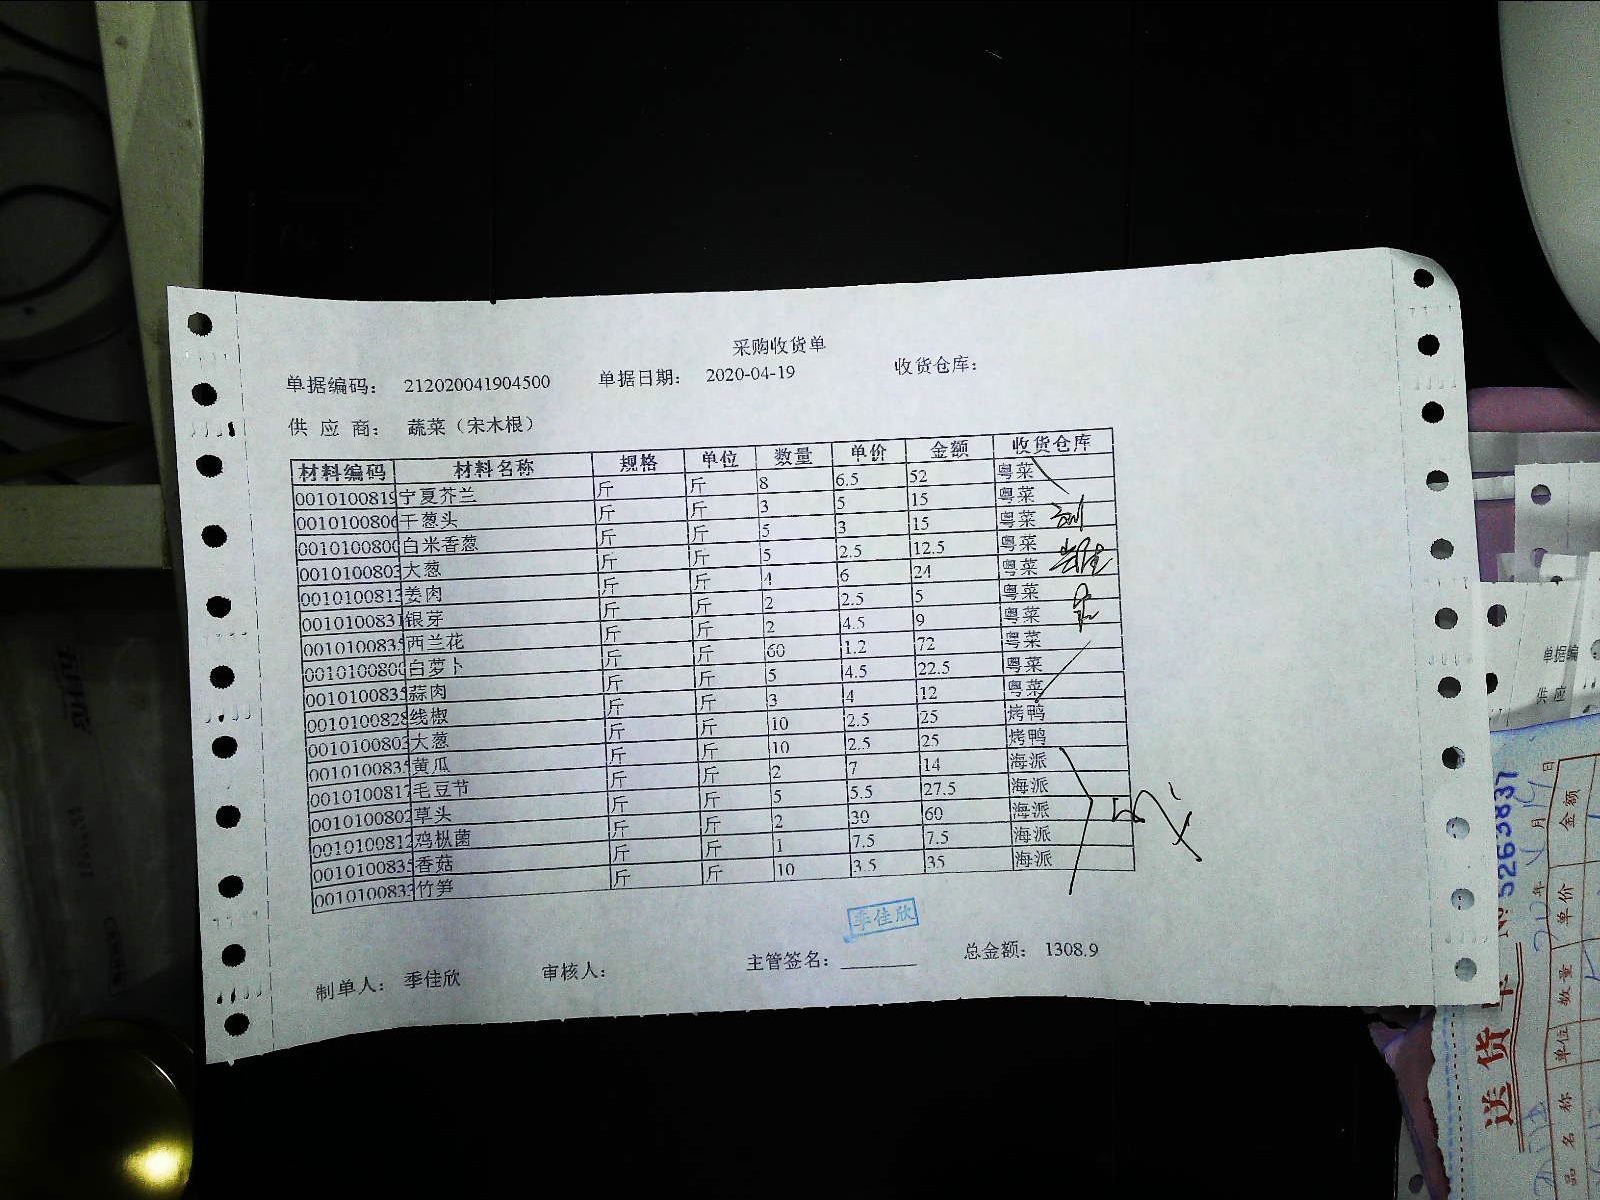 采购收货单
单据编码： 212020041904500 单据日期： 2020-04-19 收货仓库：
供 应 商： 蔬菜（宋木根）
材料编码 材料名称 规格 单位 数量 单价 金额 收货仓库
0010100819 宁夏芥兰 斤 斤 8 6.5 52 粤菜
0010100806 干葱头 斤 斤 3 5 15 粤菜
0010100800 白米香葱 斤 斤 5 3 15 粤菜
0010100803 大葱 斤 斤 5 2.5 12.5 粤菜
0010100813 姜肉 斤 斤 4 6 24 粤菜
0010100831 银芽 斤 斤 2 2.5 5 粤菜
0010100835 西兰花 斤 斤 2 4.5 9 粤菜
0010100800 白萝卜 斤 斤 60 1.2 72 粤菜
0010100835 蒜肉 斤 斤 5 4.5 22.5 粤菜
0010100828 线椒 斤 斤 3 4 12 粤菜
0010100803 大葱 斤 斤 10 2.5 25 烤鸭
0010100835 黄瓜 斤 斤 10 2.5 25 烤鸭
0010100817 毛豆节 斤 斤 2 7 14 海派
0010100802 草头 斤 斤 5 5.5 27.5 海派
0010100812 鸡枞菌 斤 斤 2 30 60 海派
0010100835 香菇 斤 斤 1 7.5 7.5 海派
0010100833 竹笋 斤 斤 10 3.5 35 海派
季佳欣
制单人： 季佳欣 审核人： 主管签名： 总金额： 1308.9
单据编
供 应
送 货
№ 5263837
年 月 日
品 名 称 单位 数量 单价 金额